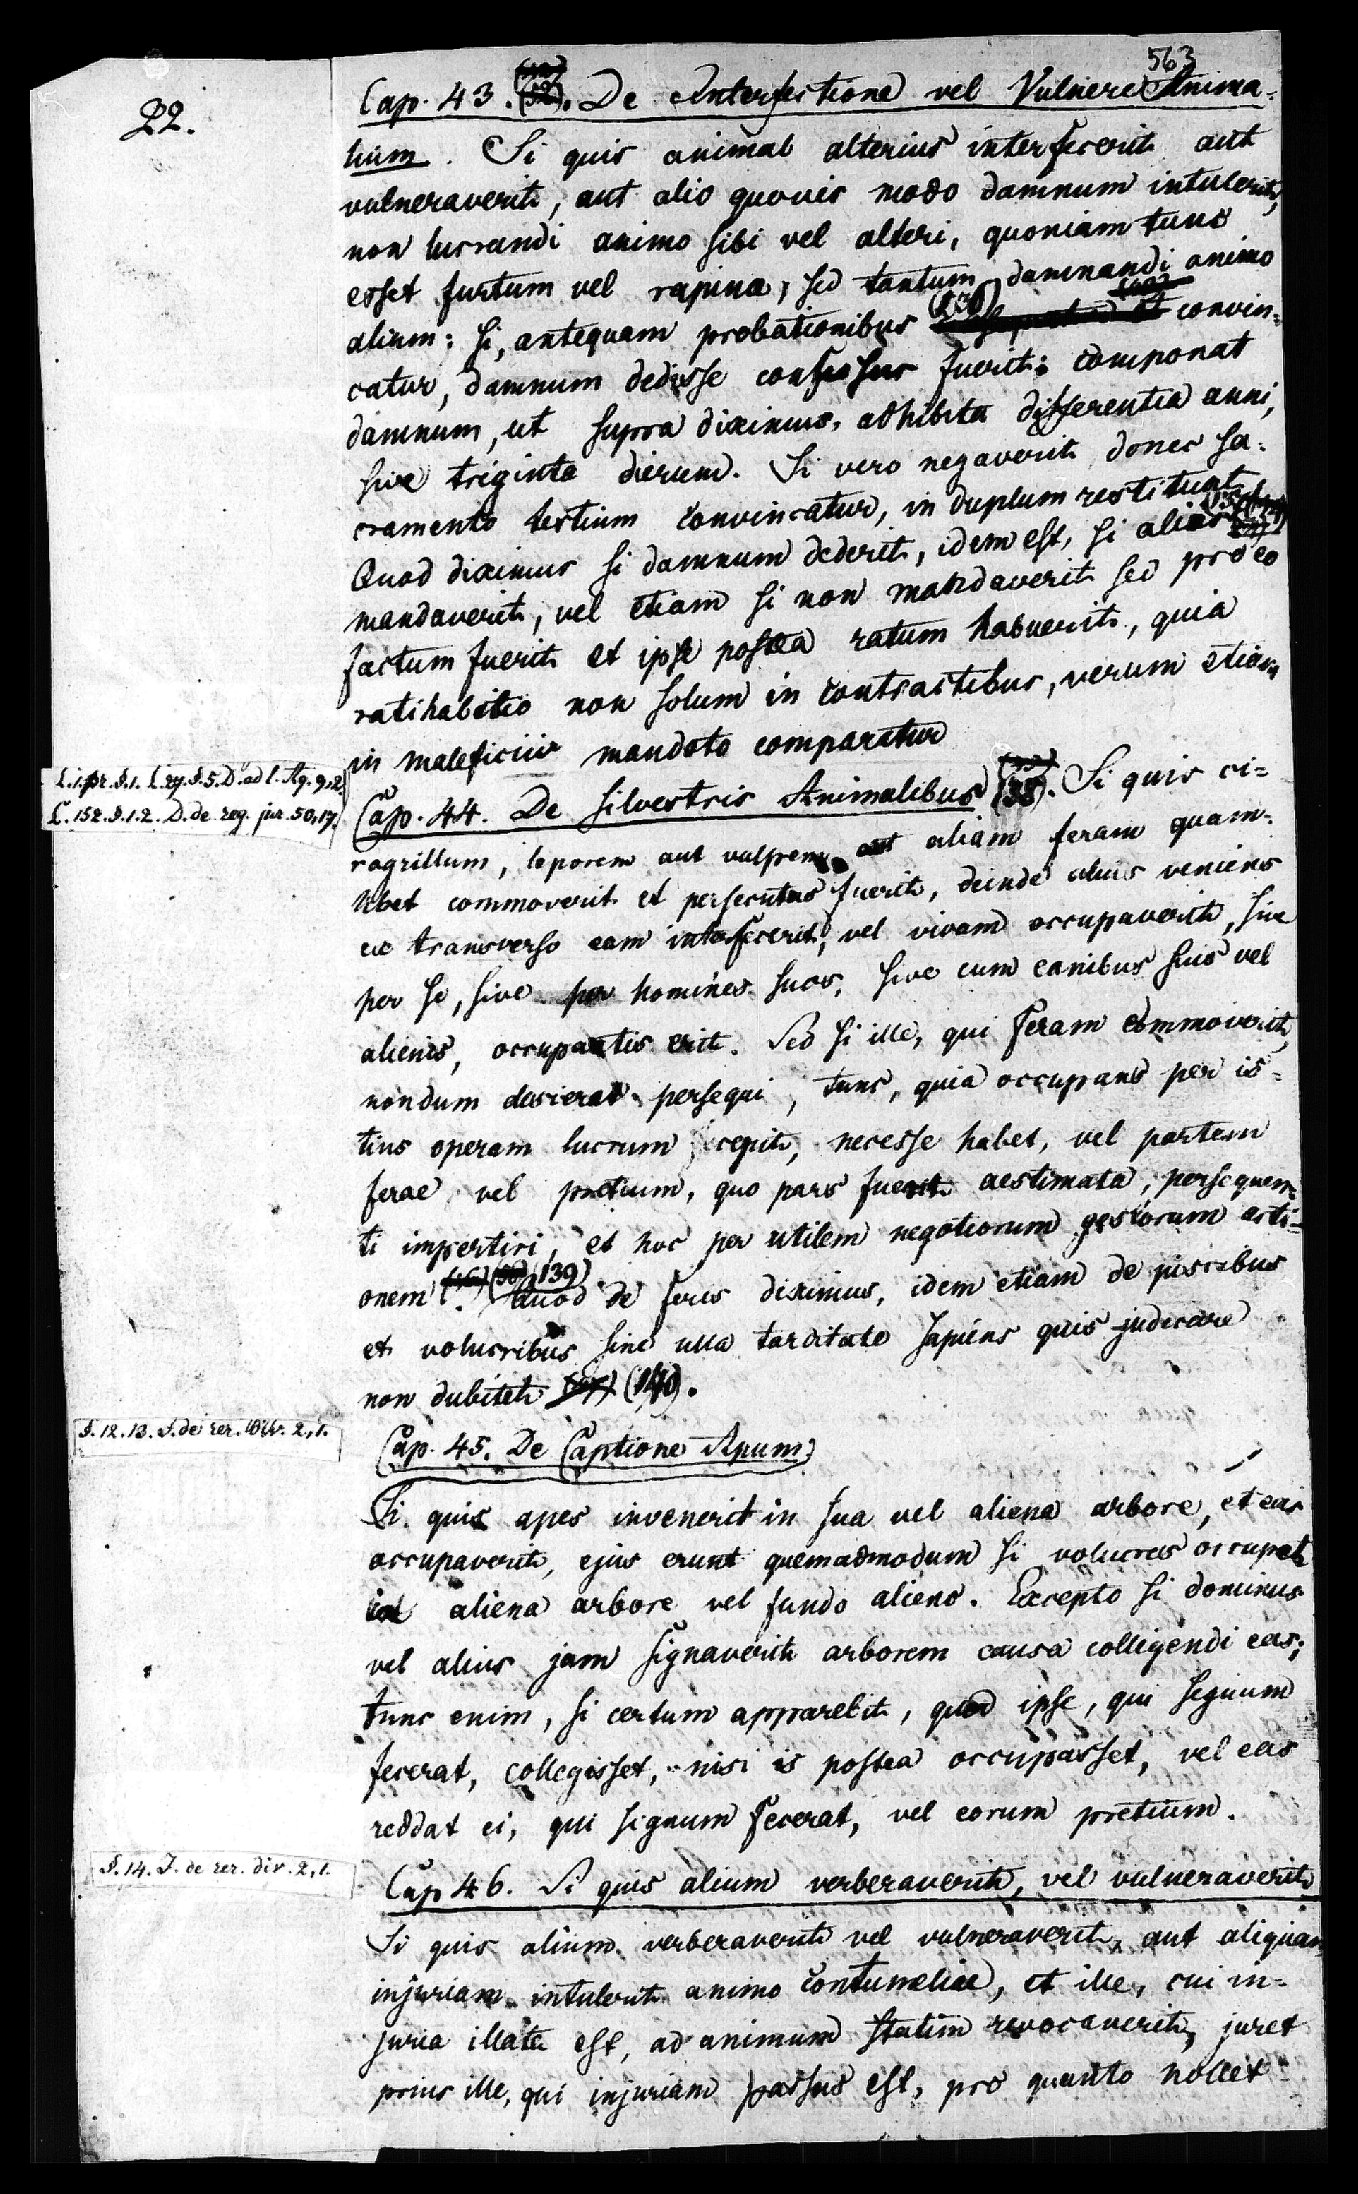 563
22.
Cap. 43. De Interfectione vel Vulnere Anima-
lium. Si quis animal alterius interfecerit aut
vulneraverit, aut alio quovis modo damnum intulerit,
non lucrandi animo sibi vel alteri, quoniam tunc
esset furtum vel rapina, sed tantum damnandi animo
alium: si, antequam probationibus convin-
catur, damnum dedisse confessus fuerit: componat
damnum, ut supra diximus, adhibita differentia anni,
sive triginta dierum. Si vero negaverit donec sa-
cramento testium convincatur, in duplum restituat
Quod diximus si damnum dederit, idem est, si alias
mandaverit, vel etiam si non mandaverit sed pro eo
factum fuerit et ipse postea ratum habuerit, quia
ratihabitio non solum in contractibus, verum etiam
in maleficiis mandato comparatur
L. 1. pr. §. 1. L. 27. §. 5. D. ad l. Aq. 9,2.
L. 152. §. 1.2. D. de reg. jur. 50,17.
Cap. 44. De silvestris Animalibus (38). Si quis ci-
rogrillum, leporem aut vulpem aut aliam feram quam-
libet commoverit et persecutus fuerit, deinde alius veniens
ex transverso eam interfecerit, vel vivam occupaverit, sive
per se, sive per homines suos, sive cum canibus suis vel
alienis, occupantis erit. Sed si ille, qui feram commoverit,
nondum desierat persequi, tunc, quia occupans per is-
tius operam lucrum cepit, necesse habet, vel partem
ferae vel pretium, quo pars fuerit aestimata, persequen-
ti impertiri, et hoc per utilem negotiorum gestorum acti-
onem (139). Quod de feris diximus, idem etiam de piscibus
et volucribus sine ulla tarditate sapiens quis judicare
non dubitet (140).
§. 12. 13. J. de rer. div. 2,1.
Cap. 45. De Captione Apum.
Si quis apes invenerit in sua vel aliena arbore, et eas
occupaverit, ejus erunt quemadmodum si volucres occupet
in aliena arbore vel fundo alieno. Excepto si dominus
vel alius jam signaverit arborem causa colligendi eas;
tunc enim, si certum apparebit, quod ipse, qui signum
fecerat, collegisset, nisi is postea occupasset, vel eas
reddat ei, qui signum fecerat, vel eorum pretium.
§. 14. J. de rer. div. 2,1.
Cap 46. Si quis alium verberaverit, vel vulneraverit
Si quis alium verberaverit vel vulneraverit, aut aliquam
injuriam intulerit animo contumeliae, et ille, cui in-
juria illata est, ad animum statim revocaverit, juret
prius ille, qui injuriam passus est, pro quanto nollet